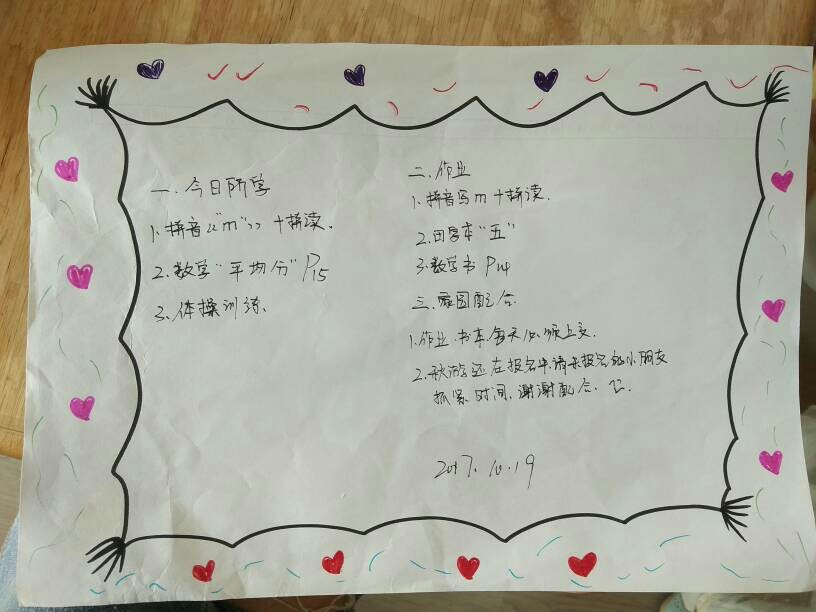 一.今日所学
1.拼音《"m"》+拼读。
2.数学"平均分" P15
3、体操训练、
二.作业
1.拼音写m+拼读.
2.田字本"五"
3.数学书 P14
三.家园配合
1.作业.书本.每天必须上交.
2.秋游还在报名中.请未报名的小朋友
抓紧时间.谢谢配合.
2017.10.19